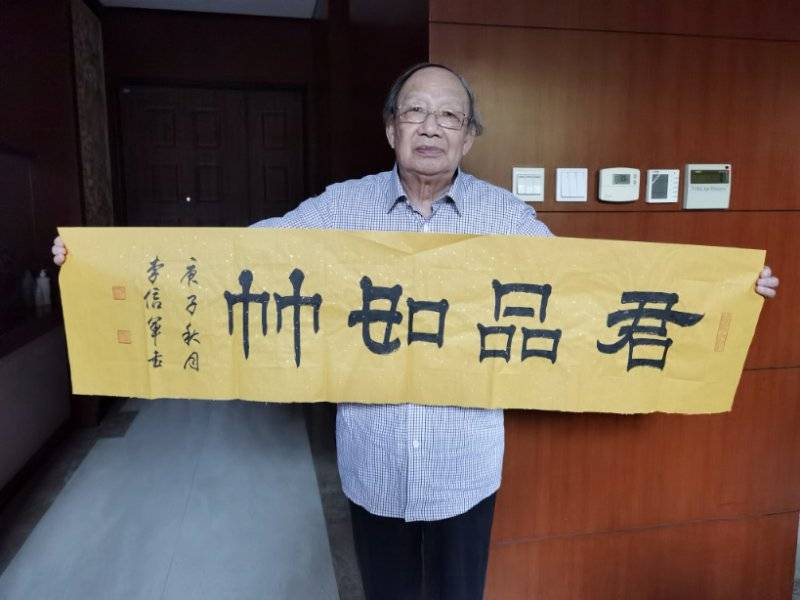 君品如竹
庚子秋月
李信军书